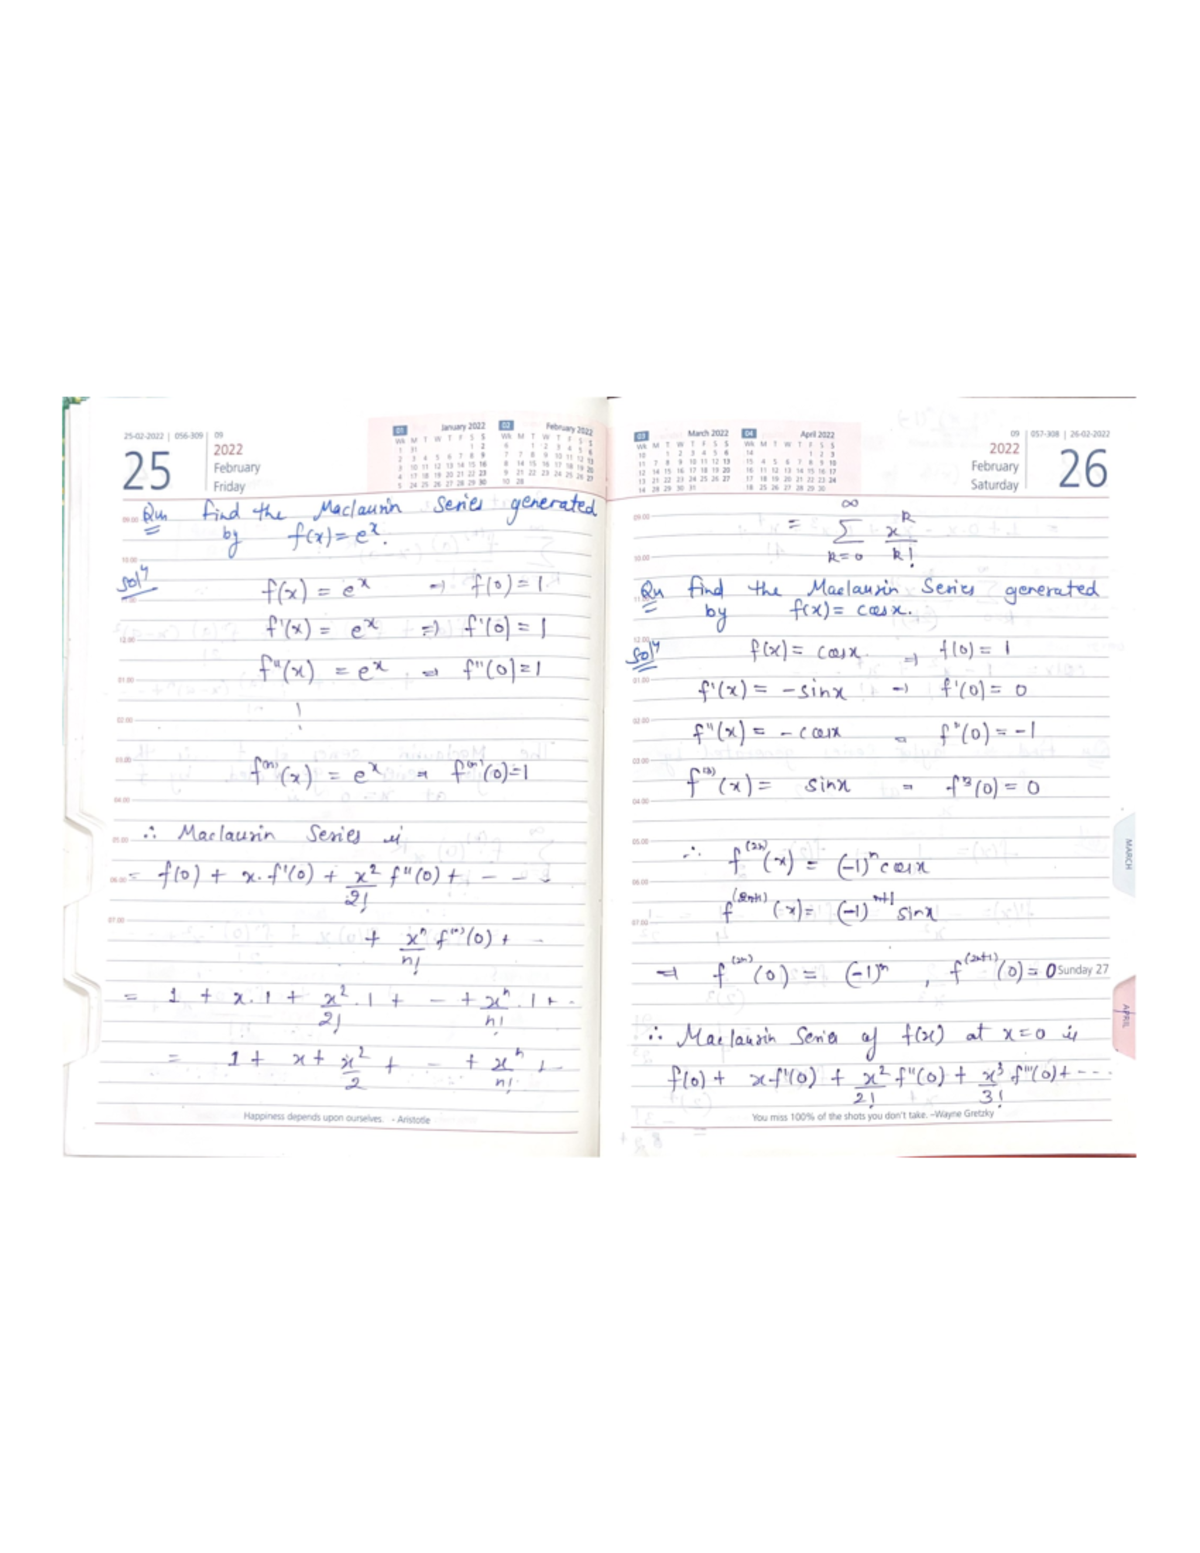 25-02-2022 | 056-309 | 09
25
2022
February
Friday
01 January 2022
02 February 2022
Qun find the Maclaurin Series generated
by f(x) = eˣ.
Solⁿ
f(x) = eˣ ⇒ f(0) = 1
f'(x) = eˣ ⇒ f'(0) = 1
f''(x) = eˣ ⇒ f''(0) = 1
f⁽ⁿ⁾(x) = eˣ ⇒ f⁽ⁿ⁾(0) = 1
∴ Maclaurin Series is
= f(0) + x. f'(0) + x²/2! f''(0) + - - -
+ xⁿ/n! f⁽ⁿ⁾(0) + -
= 1 + x. 1 + x²/2! . 1 + - + xⁿ/n! . 1 + -
= 1 + x + x²/2 + - + xⁿ/n! + -
Happiness depends upon ourselves. - Aristotle
03 March 2022
04 April 2022
09 | 057-308 | 26-02-2022
2022
February
Saturday
26
= ∞ Σ k=0 xᵏ/k!
Qu find the Maclaurin Series generated
by f(x) = cosx.
Solⁿ
f(x) = cosx ⇒ f(0) = 1
f'(x) = -sinx ⇒ f'(0) = 0
f''(x) = -cosx = f''(0) = -1
f⁽³⁾(x) = sinx = f³(0) = 0
∴ f⁽²ⁿ⁾(x) = (-1)ⁿ cosx
f⁽²ⁿ⁺¹⁾(x) = (-1)ⁿ⁺¹ sinx
⇒ f⁽²ⁿ⁾(0) = (-1)ⁿ , f⁽²ⁿ⁺¹⁾(0) = 0
Sunday 27
∴ Maclaurin Series of f(x) at x=0 is
f(0) + x.f'(0) + x²/2! f''(0) + x³/3! f'''(0) + - - -
You miss 100% of the shots you don't take. –Wayne Gretzky
MARCH
APRIL